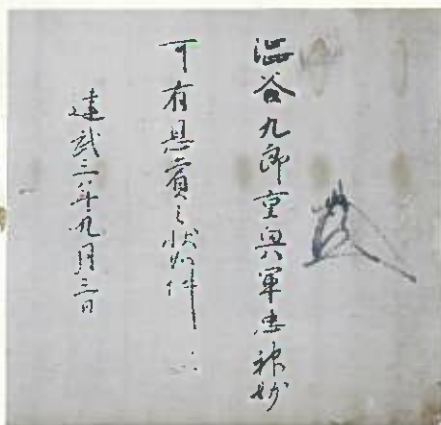 澁谷九郎重興軍忠神妙
可有恩賞之状如件
建武三年九月三日